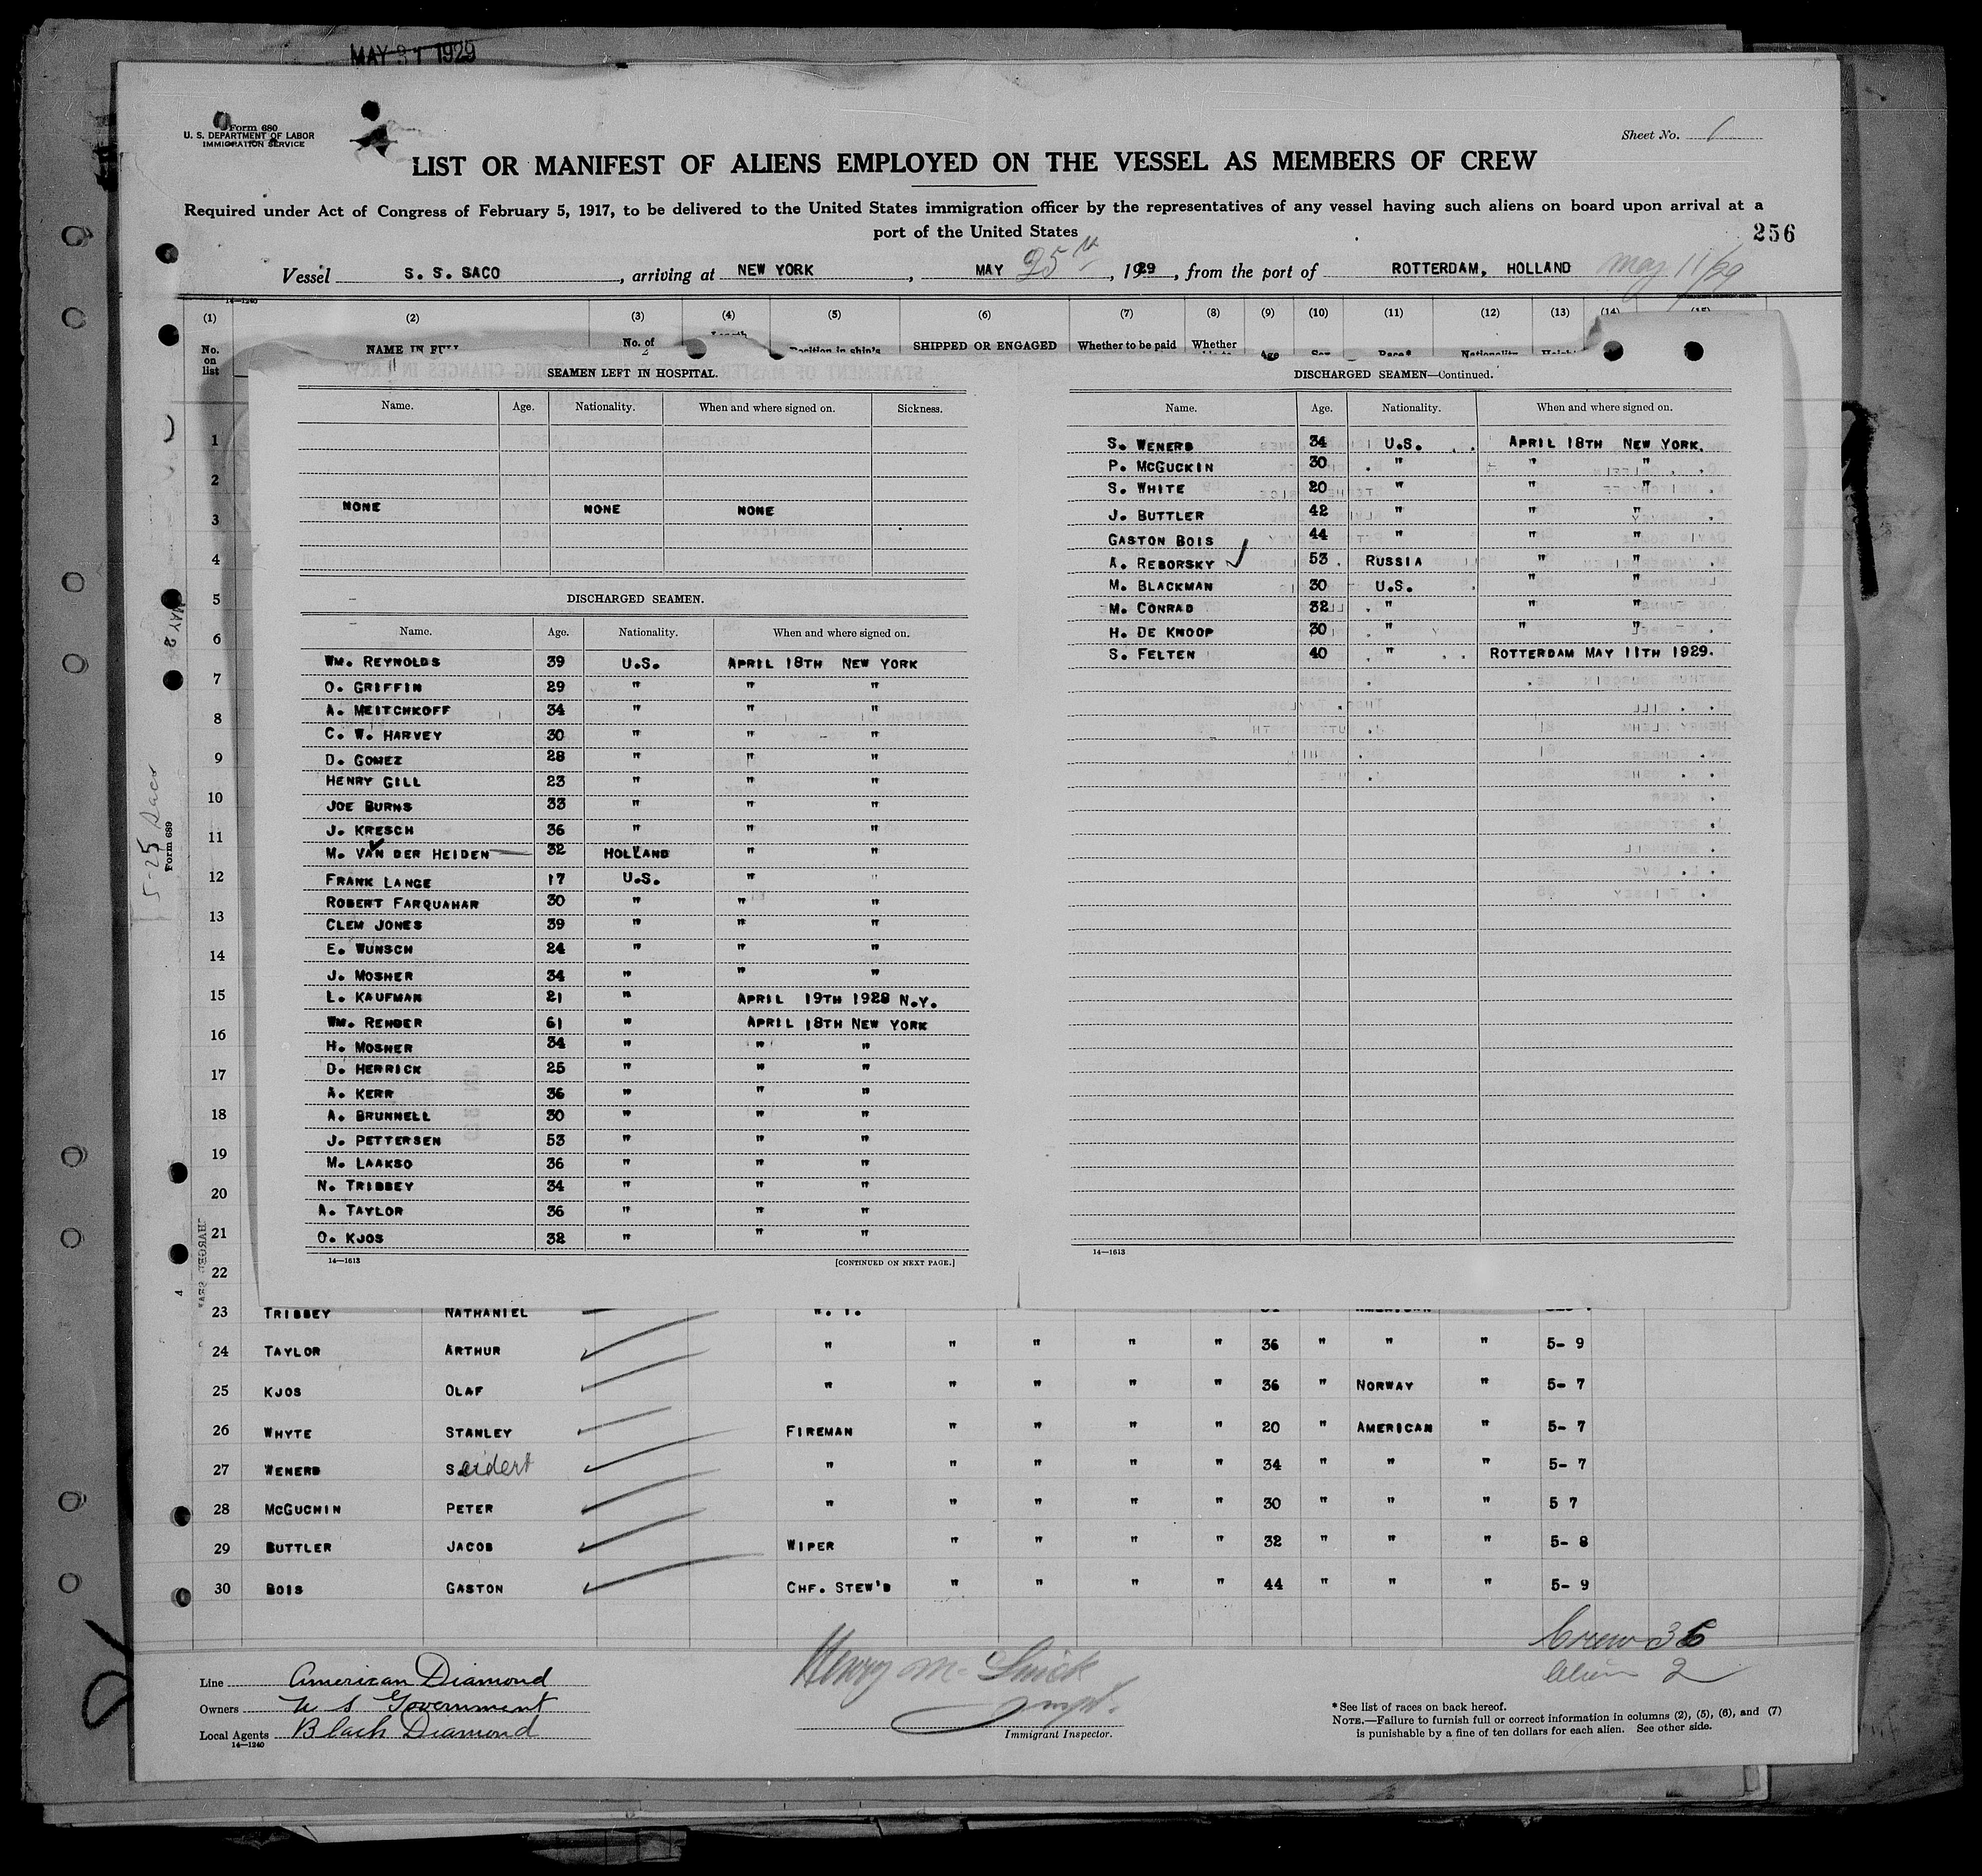 MAY 31 1929
Form 680
U. S. DEPARTMENT OF LABOR
IMMIGRATION SERVICE
Sheet No. 1
LIST OR MANIFEST OF ALIENS EMPLOYED ON THE VESSEL AS MEMBERS OF CREW
Required under Act of Congress of February 5, 1917, to be delivered to the United States immigration officer by the representatives of any vessel having such aliens on board upon arrival at a
port of the United States
256
Vessel S. S. SACO, arriving at NEW YORK, MAY 25th, 1929, from the port of ROTTERDAM, HOLLAND May 11/29
14—1240
(1) (2) (3) (4) (5) (6) (7) (8) (9) (10) (11) (12) (13) (14) (15)
No. on list NAME IN FULL No. of Position in ship's SHIPPED OR ENGAGED Whether to be paid Whether Age Sex Race* Nationality Height
SEAMEN LEFT IN HOSPITAL.
Name. Age. Nationality. When and where signed on. Sickness.
NONE NONE NONE
DISCHARGED SEAMEN.
Name. Age. Nationality. When and where signed on.
WM. REYNOLDS 39 U.S. APRIL 18TH NEW YORK
O. GRIFFIN 29 " " "
A. MEITCHKOFF 34 " " "
C. W. HARVEY 30 " " "
D. GOMEZ 28 " " "
HENRY GILL 23 " " "
JOE BURNS 33 " " "
J. KRESCH 36 " " "
M. VAN DER HEIDEN 32 HOLLAND " "
FRANK LANGE 17 U.S. " "
ROBERT FARQUAHAR 30 " " "
CLEM JONES 39 " " "
E. WUNSCH 24 " " "
J. MOSHER 34 " " "
L. KAUFMAN 21 " APRIL 19TH 1928 N.Y.
WM. RENDER 61 " APRIL 18TH NEW YORK
H. MOSHER 34 " " "
D. HERRICK 25 " " "
A. KERR 36 " " "
A. BRUNNELL 30 " " "
J. PETTERSEN 53 " " "
M. LAAKSO 36 " " "
N. TRIBBEY 34 " " "
A. TAYLOR 36 " " "
O. KJOS 32 " " "
14—1613 [CONTINUED ON NEXT PAGE.]
DISCHARGED SEAMEN—Continued.
Name. Age. Nationality. When and where signed on.
S. WENERD 34 U.S. APRIL 18TH NEW YORK.
P. MCGUCKIN 30 " " "
S. WHITE 20 " " "
J. BUTTLER 42 " " "
GASTON BOIS 44 " " "
A. REBORSKY 53 RUSSIA " "
M. BLACKMAN 30 U.S. " "
M. CONRAD 32 " " "
H. DE KNOOP 30 " " "
S. FELTEN 40 " ROTTERDAM MAY 11TH 1929.
14—1613
1
2
3
4
5
6
7
8
9
10
11
12
13
14
15
16
17
18
19
20
21
22
5-25 Saco
Form 689
4
23 TRIBBEY NATHANIEL W. T.
24 TAYLOR ARTHUR " " " " " 36 " " " 5- 9
25 KJOS OLAF " " " " " 36 " NORWAY " 5- 7
26 WHYTE STANLEY FIREMAN " " " " 20 " AMERICAN " 5- 7
27 WENERD Seidert " " " " " 34 " " " 5- 7
28 MCGUCHIN PETER " " " " " 30 " " " 5 7
29 BUTTLER JACOB WIPER " " " " 32 " " " 5- 8
30 BOIS GASTON CHF. STEW'D " " " " 44 " " " 5- 9
Crew 36
Alien 2
Line American Diamond
Owners U S Government
Local Agents Black Diamond
14—1240
Henry M.
Immigrant Inspector.
* See list of races on back hereof.
NOTE.—Failure to furnish full or correct information in columns (2), (5), (6), and (7)
is punishable by a fine of ten dollars for each alien. See other side.